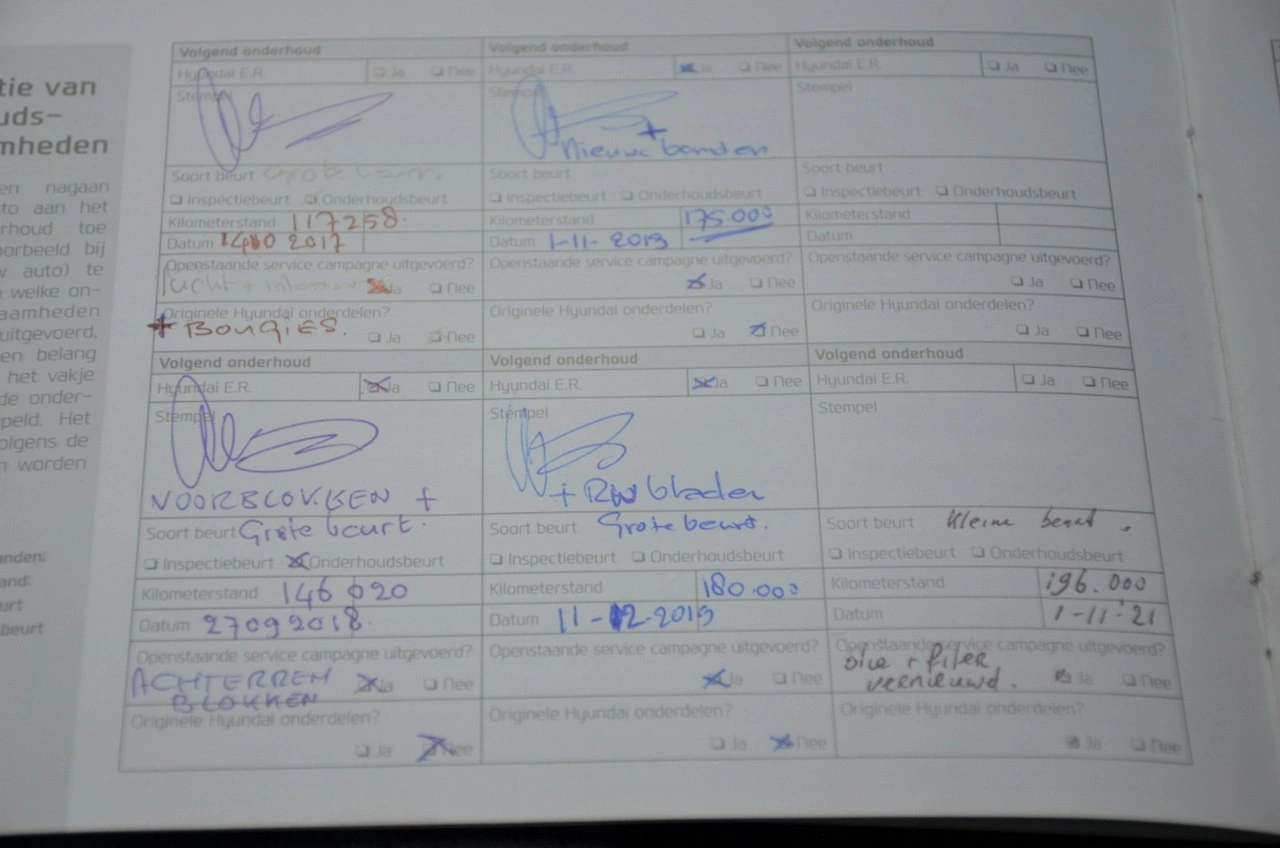 tie van
uds-
mheden
en nagaan
to aan het
rhoud toe
oorbeeld bij
v auto) te
welke on-
aamheden
uitgevoerd,
en belang
het vakje
de onder-
peld. Het
olgens de
n worden
nden:
and:
urt
beurt
Volgend onderhoud
Hyundai E.R. Ja Nee
Stempel
Soort beurt Grote beurt.
Inspectiebeurt Onderhoudsbeurt
Kilometerstand 117258.
Datum 2017
Openstaande service campagne uitgevoerd?
lucht + Ja Nee
Originele Hyundai onderdelen?
+ BOUGIES. Ja Nee
Volgend onderhoud
Hyundai E.R. Ja Nee
Stempel
VOORBLOKKEN +
Soort beurt Grote beurt.
Inspectiebeurt Onderhoudsbeurt
Kilometerstand 146020
Datum 27092018.
Openstaande service campagne uitgevoerd?
ACHTERREM Ja Nee
BLOKKEN
Originele Hyundai onderdelen?
Ja Nee
Volgend onderhoud
Hyundai E.R. Ja Nee
Stempel
+
Nieuwe banden
Soort beurt
Inspectiebeurt Onderhoudsbeurt
Kilometerstand 175.000
Datum 1-11-2019
Openstaande service campagne uitgevoerd?
Ja Nee
Originele Hyundai onderdelen?
Ja Nee
Volgend onderhoud
Hyundai E.R. Ja Nee
Stempel
+ RW bladen
Soort beurt Grote beurt.
Inspectiebeurt Onderhoudsbeurt
Kilometerstand 180.000
Datum 11-12-2019
Openstaande service campagne uitgevoerd?
Ja Nee
Originele Hyundai onderdelen?
Ja Nee
Volgend onderhoud
Hyundai E.R. Ja Nee
Stempel
Soort beurt
Inspectiebeurt Onderhoudsbeurt
Kilometerstand
Datum
Openstaande service campagne uitgevoerd?
Ja Nee
Originele Hyundai onderdelen?
Ja Nee
Volgend onderhoud
Hyundai E.R. Ja Nee
Stempel
Soort beurt Kleine beurt.
Inspectiebeurt Onderhoudsbeurt
Kilometerstand 196.000
Datum 1-11-21
Openstaande service campagne uitgevoerd?
olie + filter
vernieuwd. Ja Nee
Originele Hyundai onderdelen?
Ja Nee